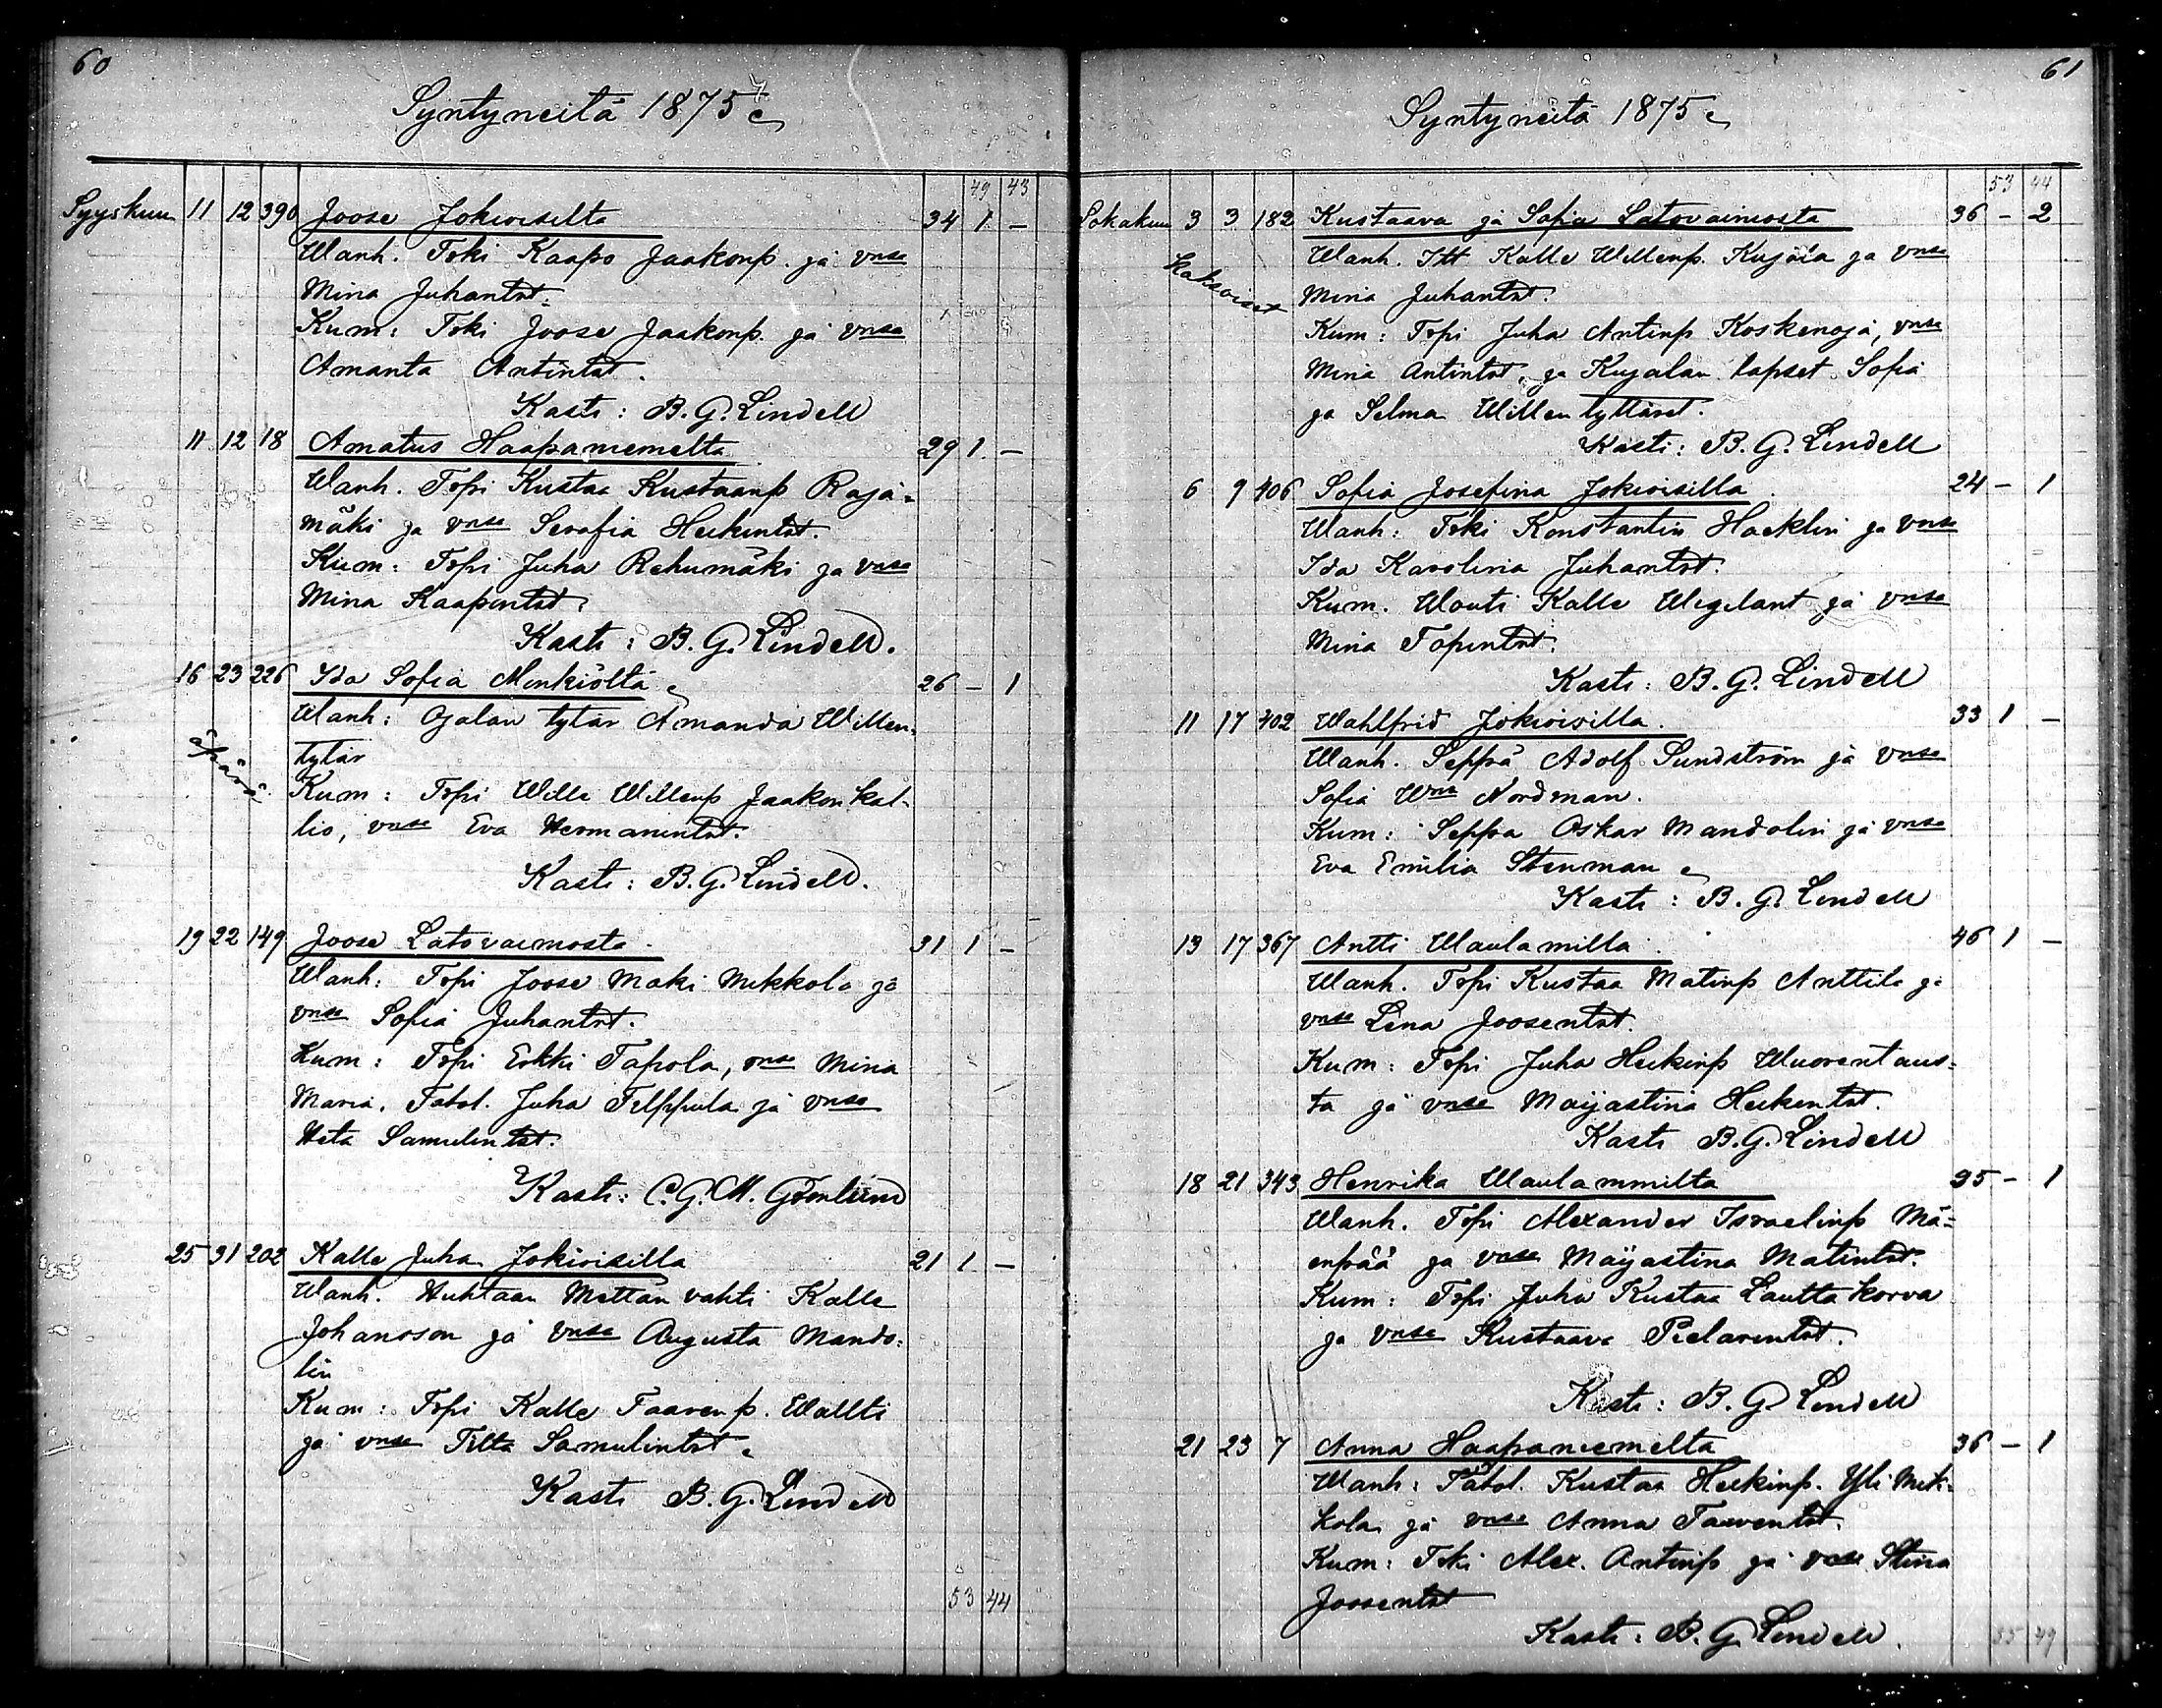 60
Syntyneitä 1875
49 43
Syyskuu 11 12 390 Joose Jokioisilta 34 1 –
Wanh. Toki Kaapo Jaakonp. ja vnsa
Mina Juhantät.
Kum: Toki Joose Jaakonp. ja vnsa
Amanta Antintät.
Kasti: B. G. Lindell
11 12 18 Amatus Haapaniemeltä 29 1 –
Wanh. Topi Kustaa Kustaanp Raja=
mäki ja vnsa Serafia Heikintät.
Kum: Topi Juha Rehumäki ja vnsa
Mina Kaapontät.
Kasti: B. G. Lindell.
16 23 226 Ida Sofia Minkiöltä 26 – 1
Wanh: Ojalan tytär Amanda Willen=
äpärä
tytär
Kum: Topi Wille Willenp Jaakon kal-
lio, vnsa Eva Hermanintät.
Kasti: B. G. Lindell.
19 22 149 Joose Latovaimosta 31 1 –
Wanh: Topi Joose Mäki Mikkola ja
vnsa Sofia Juhantät.
Kum: Topi Erkki Tapola, vnsa Mina
Maria. Tatol. Juha Filppula ja vnsa
Heta Samulintät.
Kasti: C. G. M. Grönlund
25 31 202 Kalle Juha Jokioisilla 21 1 –
Wanh. Huhtaan Mettän vahti Kalle
Johansson ja vnsa Augusta Mando=
lin
Kum: Topi Kalle Taavenp. Wallti
ja vnsa Tilta Samulintät.
Kasti B. G. Lindell
53 44
61
Syntyneitä 1875
53 44
Lokakuu 3 3 182 Kustaava ja Sofia Latovaimosta 36 – 2
Kaksoiset
Wanh. Itt Kalle Willenp. Kujala ja vnsa
Mina Juhantät.
Kum: Topi Juha Antinp Koskenoja, vnsa
Mina Antintät, ja Kujalan lapset Sofia
ja Selma Willen tyttäret.
Kasti: B. G. Lindell
6 9 406 Sofia Josefina Jokioisilla 24 – 1
Wanh: Toki Konstantin Hacklin ja vnsa
Ida Karolina Juhantät.
Kum. Wouti Kalle Wegelant ja vnsa
Mina Topintät.
Kasti: B. G. Lindell
11 17 402 Wahlfrid Jokioisilla. 33 1 –
Wanh. Seppä Adolf Sundström ja vnsa
Sofia Wna Nordman.
Kum: Seppä Oskar Mandolin ja vnsa
Eva Emilia Stenman
Kasti: B. G. Lindell
13 17 367 Antti Waulamilla 46 1 –
Wanh. Topi Kustaa Matinp Anttila ja
vnsa Lena Joosentät.
Kum: Topi Juha Heikinp Wuorentaus=
ta ja vnsa Maijastina Heikintät.
Kasti B. G. Lindell
18 21 343 Henrika Waulammilta 35 – 1
Wanh. Topi Alexander Israelinp Mä=
enpää ja vnsa Maijastina Matintät.
Kum: Topi Juha Kustaa Lautta korva
ja vnsa Kustaava Pielarintät.
Kasti: B. G. Lindell
21 23 7 Anna Haapaniemeltä 36 – 1
Wanh: Tatol. Kustaa Heikinp. Yli Mik-
kola ja vnsa Anna Taaventät.
Kum: Toki Alex. Antinp ja vnsa Stina
Joosentät
Kasti: B. G. Lindell.
55 49